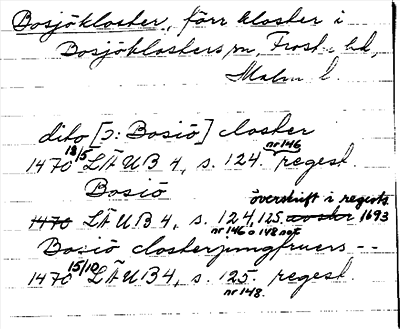 Bosjökloster, förr kloster i
Bosjöklosters sn, Frosta hd,
Malm. l.
dito [ɔ: Bosiö] closter
1470 18/5 LÄUB 4, s. 124. nr 146 regest.
Bosiö
överskrift i regests
1470 LÄUB 4, s. 124, 125. 1693
nr 146 o 148
Bosiö closterjungfruers --
1470 15/10 LÄUB 4, s. 125. regest.
nr 148.